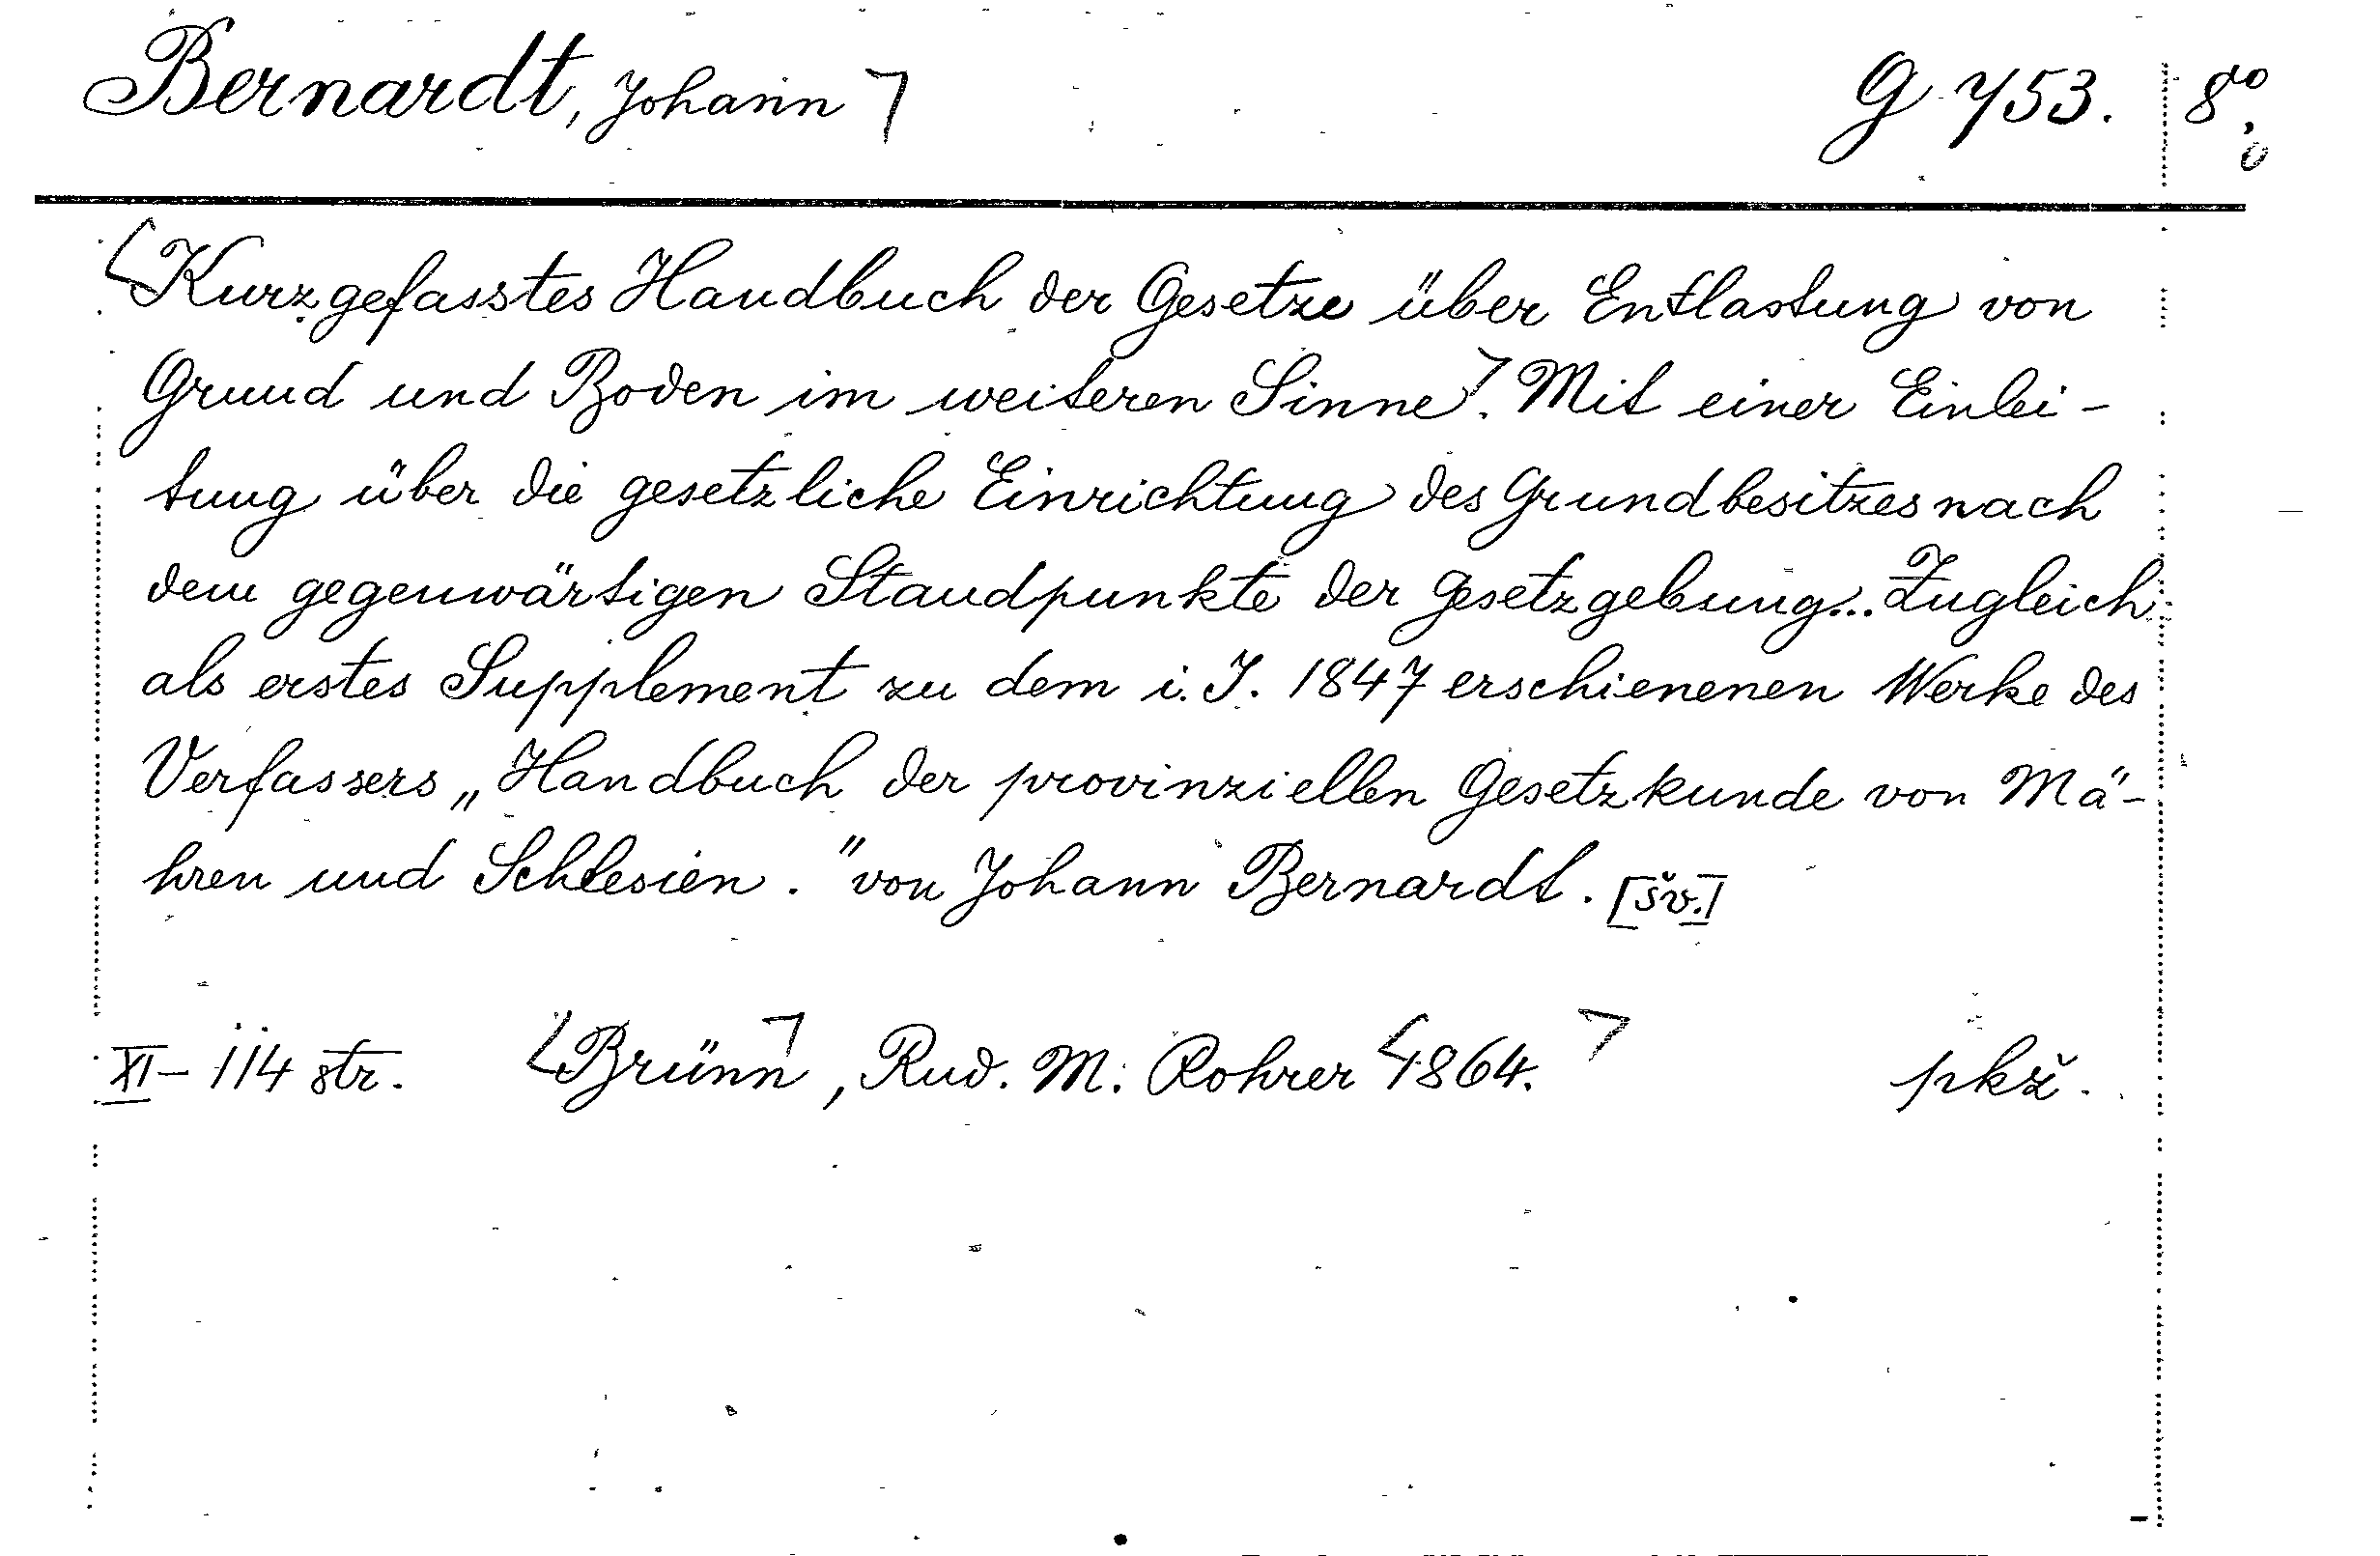 Bernardt, Johann ⌉ G 753. 8°,
⌊Kurzgefasstes Handbuch der Gesetze über Entlastung von
Grund und Boden im weiteren Sinne⌉. Mit einer Einlei-
tung über die gesetzliche Einrichtung des Grundbesitzes nach
dem gegenwärtigen Standpunkte der Gesetzgebung... Zugleich
als erstes Supplement zu dem i. J. 1847 erschienenen Werke des
Verfassers „Handbuch der provinziellen Gesetzkunde von Mä-
hren und Schlesien." von Johann Bernardt. [šv.]
XI – 114 str. ⌊Brünn⌉, Rud. M. Rohrer ⌊1864.⌉ pkž.